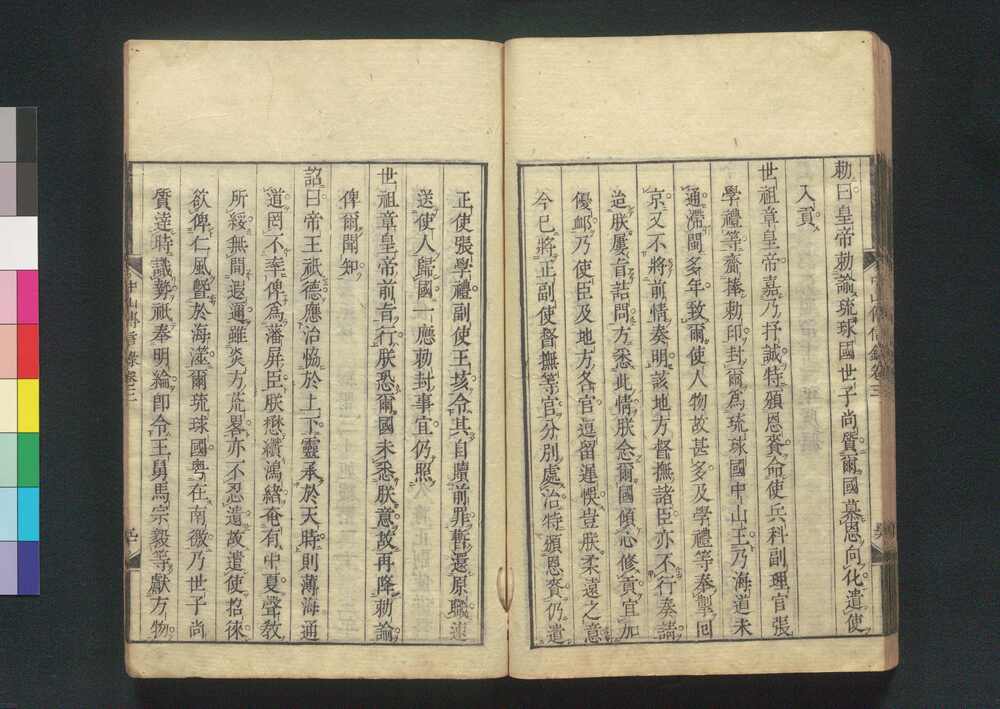 勅曰皇帝勅諭琉球國世子尚質爾國慕恩向化遣使
入貢
世祖章皇帝嘉乃抒誠特頒恩賚命使兵科副理官張
學禮等齎捧勅印封爾爲琉球國中山王乃海道未
通滯閩多年致爾使人物故甚多及學禮等奉掣回
京又不將前情奏明該地方督撫諸臣亦不行奏請
迨朕屢旨詰問方悉此情朕念爾國傾心修貢宜加
優卹乃使臣及地方各官逗留遲悞豈朕柔遠之意
今已將正副使督撫等官分別處治特頒恩賚仍遣
中山傳信錄卷三
正使張學禮副使王垓令其自贖前罪暫還原職速
送使人歸國一應勅封事宜仍照
世祖章皇帝前旨行朕恐爾國未悉朕意故再降勅諭
俾爾聞知
詔曰帝王祇德應治恊於上下靈承於天時則薄海通
道罔不率俾爲藩屏臣朕懋纘鴻緒奄有中夏聲教
所綏無間遐邇雖炎方荒畧亦不忍遺故遣使招徠
欲俾仁風曁於海澨爾琉球國粤在南徼乃世子尚
質達時識勢祇奉明綸卽令王舅馬宗毅等獻方物
中山傳信錄卷三